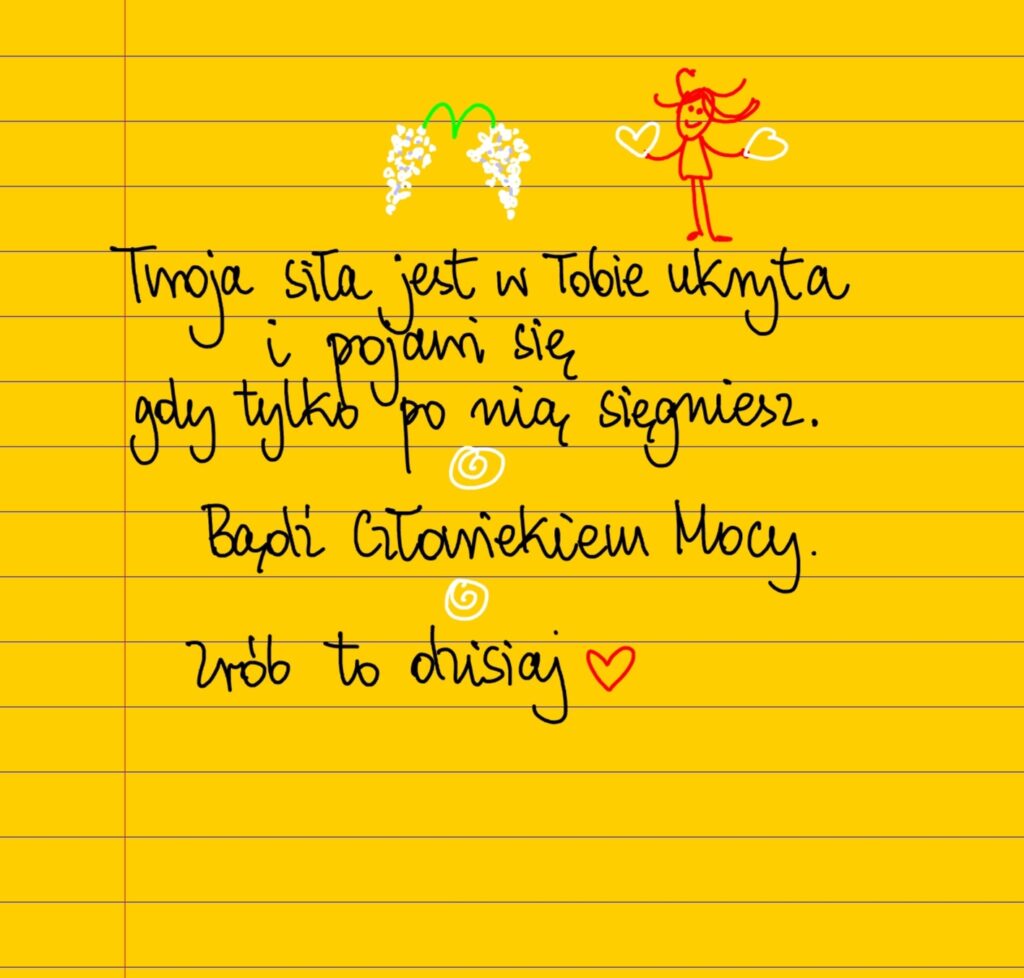 Twoja siła jest w Tobie ukryta
i pojawi się
gdy tylko po nią sięgniesz.
Bądź Człowiekiem Mocy.
Zrób to dzisiaj